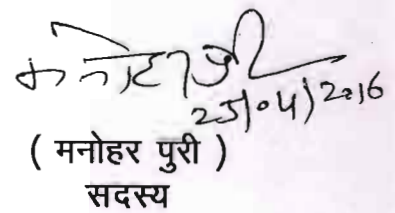 मनोहर पुरी
25/04/2016
( मनोहर पुरी )
सदस्य